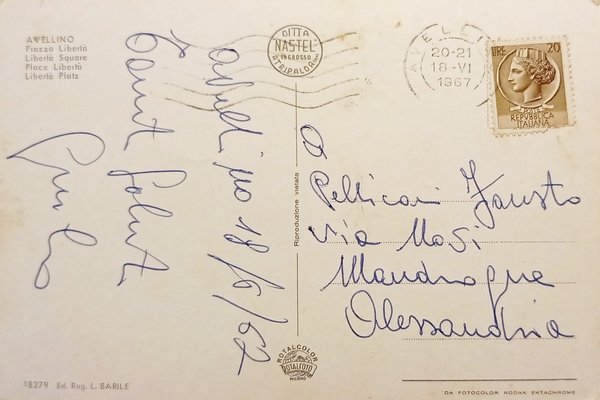 AVELLINO
Piazza Libertà
Libertà Square
Place Liberté
Libertà Platz
DITTA
NASTEL
INGROSSO
ATRIPALDA
20-21
18-VI
1967
LIRE 20
REPVBBLICA
ITALIANA
Avellino 18/6/67
Tanti Saluti
Pellicani Fausto
Via
Mandrogne
Alessandria
Riproduzione vietata
ROTALCOLOR
ROTALFOTO
MILANO
18279 Ed. Rag. L. BARILE
DA FOTOCOLOR KODAK EKTACHROME